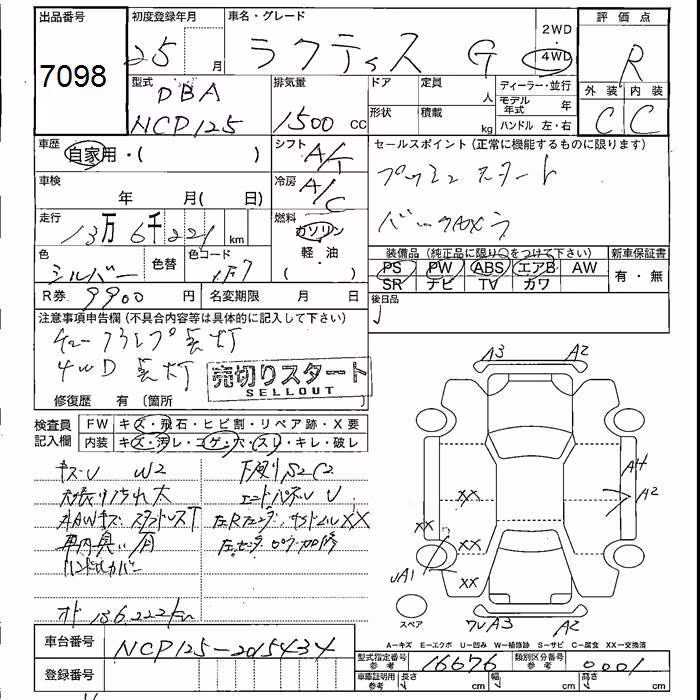 出品番号 初度登録年月 車名・グレード 2WD 評価点
7098 25 月 ラクティス G 4WD R
型式 DBA 排気量 ドア 定員 人 ディーラー・並行 外装 内装
モデル年式 年
NCP125 1500 cc 形状 積載 kg ハンドル 左・右 C C
車歴 自家用・( ) シフト A/T セールスポイント(正常に機能するものに限ります)
車検 年 月( 日) 冷房 A/C プッシュスタート
走行 13万6千221 km 燃料 ガソリン バックカメラ
色 シルバー 色替 色コード 1F7 軽・油 装備品(純正品に限り○をつけて下さい) 新車保証書
PS PW ABS エアB AW 有・無
SR ナビ TV カワ
R券 9900 円 名変期限 月 日 後日品
注意事項申告欄(不具合内容等は具体的に記入して下さい)
4WD
売切りスタート
SELLOUT
修復歴 有(箇所
検査員記入欄 FW キズ・飛石・ヒビ割・リペア跡・X要
内装 キズ・汚レ・コゲ・穴・スレ・キレ・破レ
キズU W2 下廻りS2C2
エンドパネルU
XX
ハンドルカバー
136222km
A3 A2
A4
A2
XX
XX XX
UA1 XX
スペア A3 A2
A-キズ E-エクボ U-凹み W-補修跡 S-サビ C-腐食 XX-交換済
車台番号 NCP125-2015434 型式指定番号 参考 16676 類別区分番号 参考 0001
登録番号 車庫証明用 参考 長さ cm 幅 cm 高さ cm